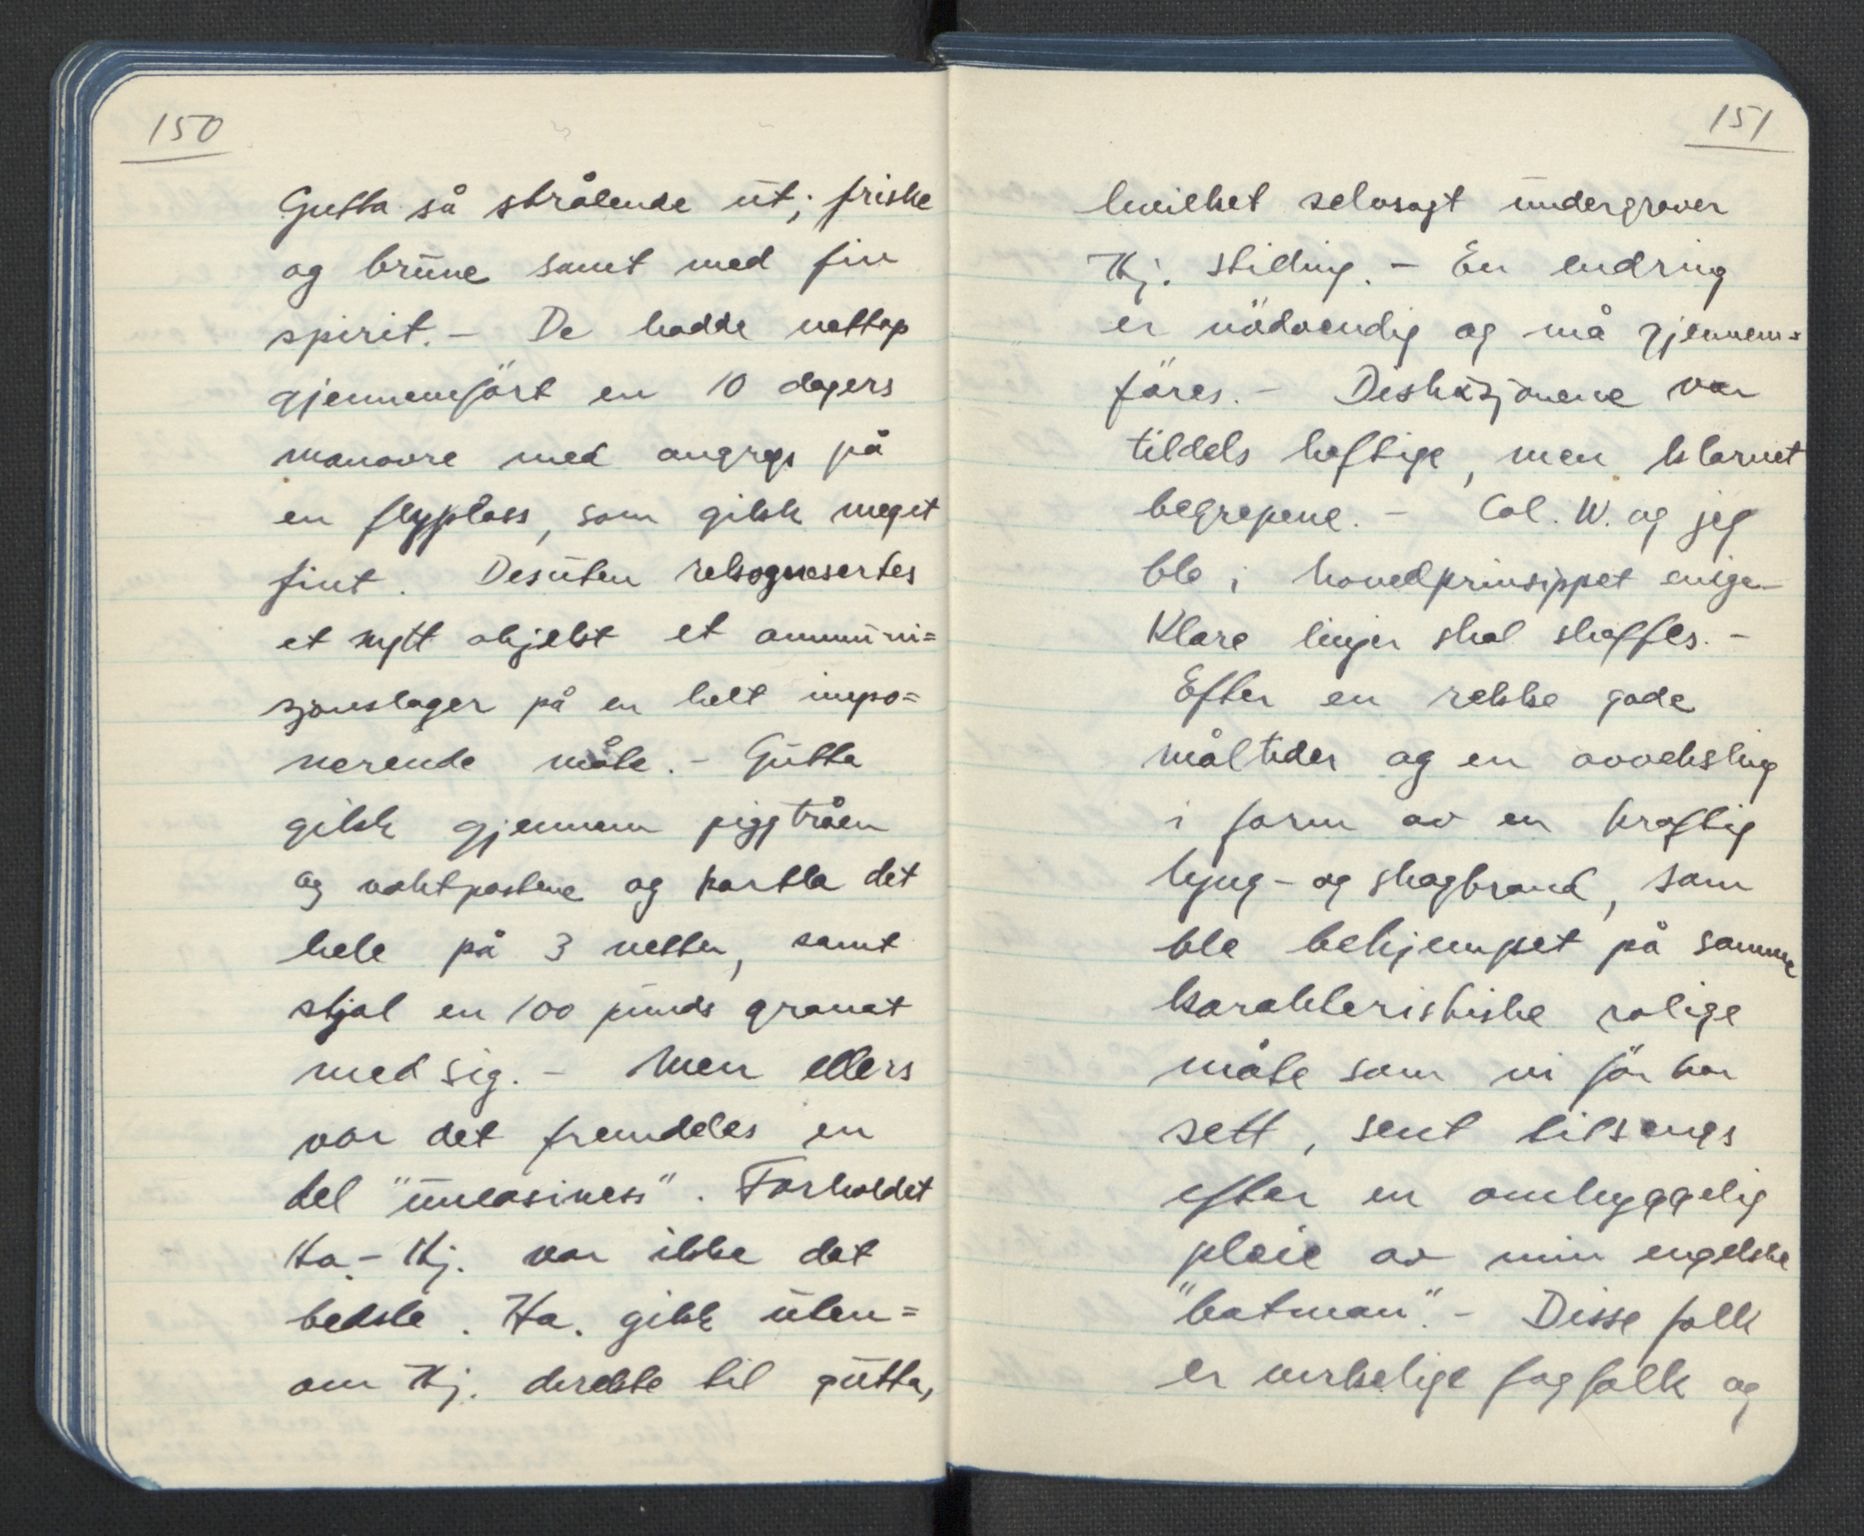 150
Gutta så strålende ut; friske
og brune samt med fin
spirit. - De hadde nettop
gjennemfört en 10 dagers
manovre med angrep på
en flyplass, som gikk meget
fint. Desuten rekognosertes
et nytt objekt et ammuni=
sjonslager på en helt impo=
nerende måte. - Gutta
gikk gjennem piggtråen
og vaktpostene og kartla det
hele på 3 netter, samt
stjal en 100 punds granat
med sig. - Men ellers
var det fremdeles en
del "uneasiness". Forholdet
Ha. - Kj. var ikke det
bedste. Ha. gikk uten=
om Kj. direkte til gutta,
151
hvilket selvsagt undergraver
Kj. stilling. - En endring
er nödvendig og må gjennem=
föres. - Diskusjonene var
tildels heftige, men klarnet
begrepene. - Col. W. og jeg
ble i hovedprinsippet enige -
Klare linjer skal skaffes. -
Efter en rekke gode
måltider og en avveksling
i form av en kraftig
lyng- og skogbrand, som
ble bekjempet på samme
karakteristiske rolige
måte som vi för har
sett, sent tilsengs
efter en omhyggelig
pleie av min engelske
"batman". - Disse folk
er virkelige fagfolk og